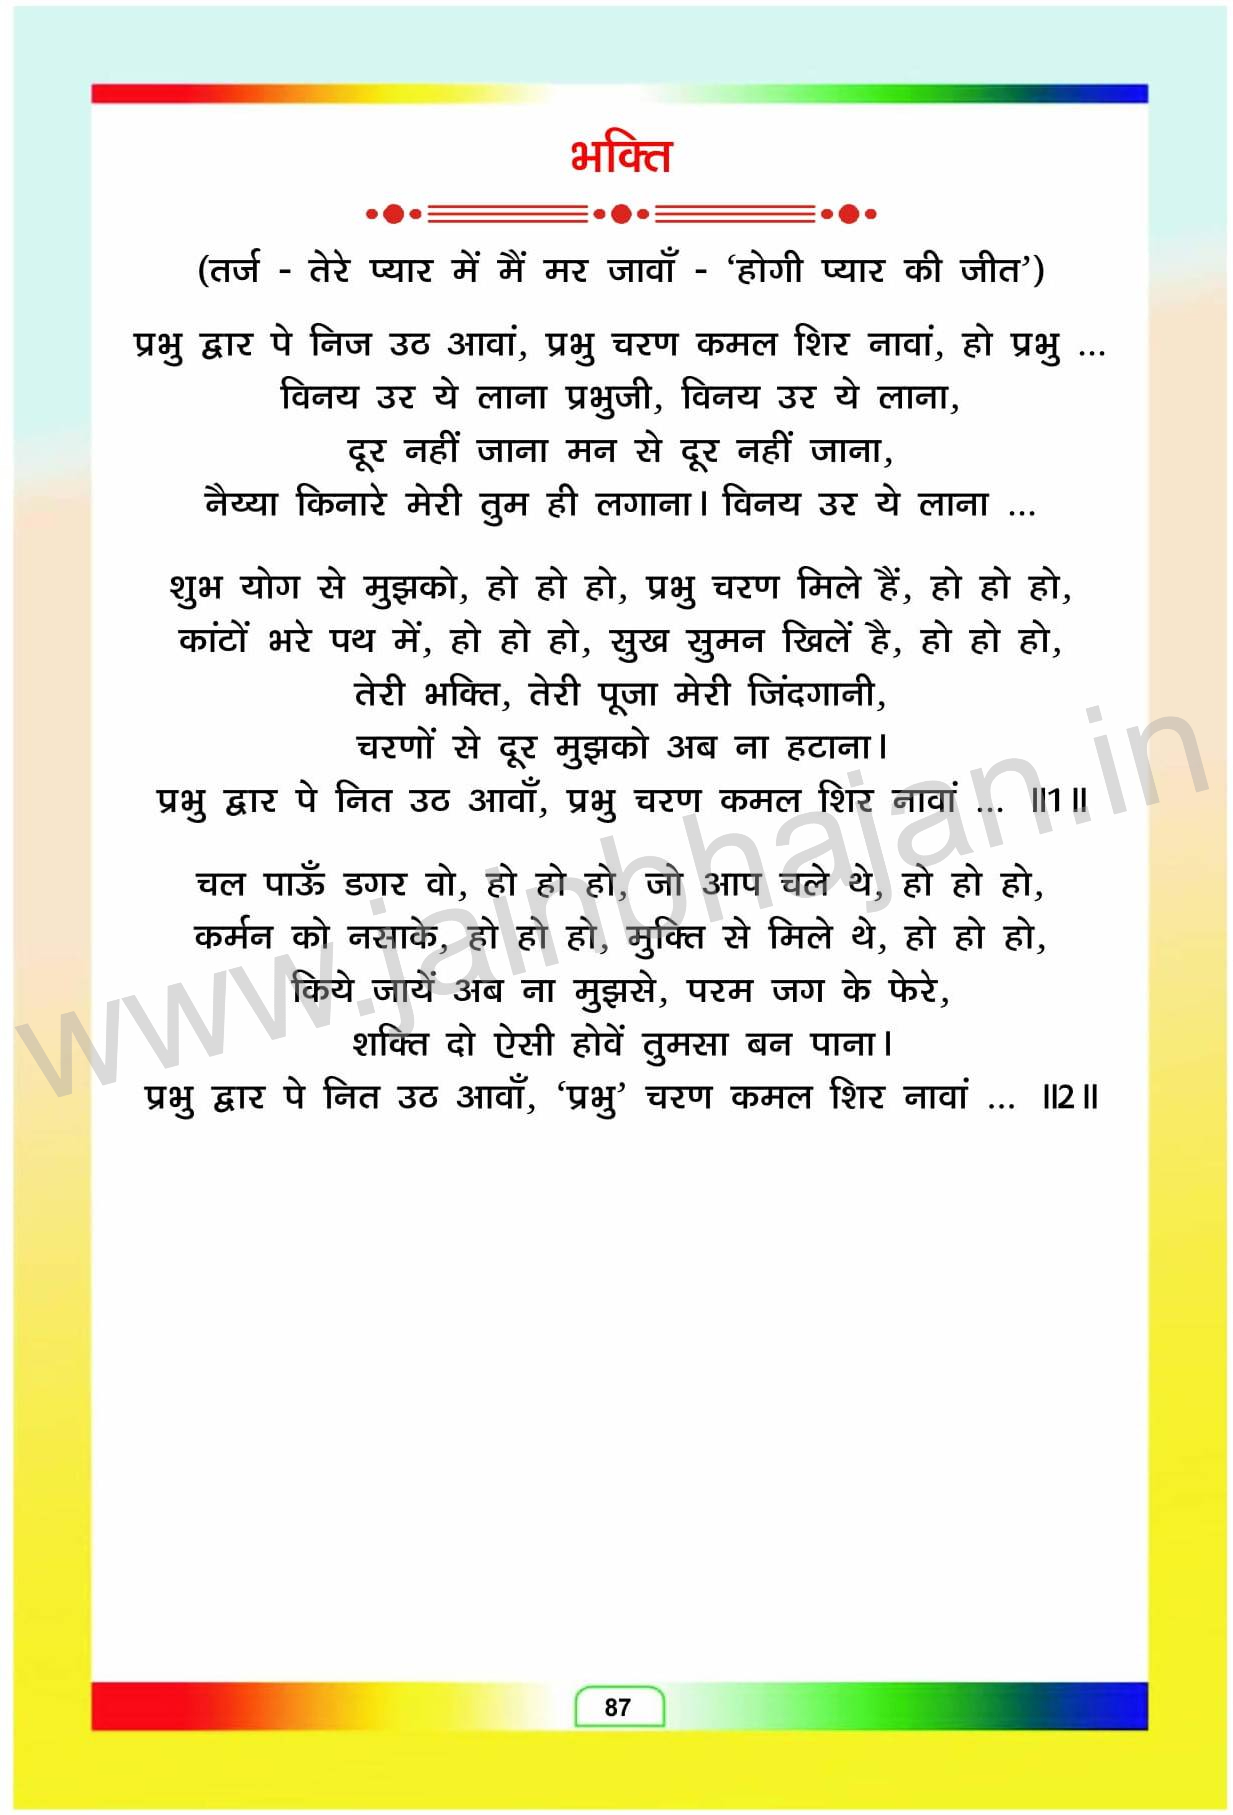 भक्ति
(तर्ज - तेरे प्यार में मैं मर जावाँ - ‘होगी प्यार की जीत’)
प्रभु द्वार पे निज उठ आवां, प्रभु चरण कमल शिर नावां, हो प्रभु ...
विनय उर ये लाना प्रभुजी, विनय उर ये लाना,
दूर नहीं जाना मन से दूर नहीं जाना,
नैय्या किनारे मेरी तुम ही लगाना। विनय उर ये लाना ...
शुभ योग से मुझको, हो हो हो, प्रभु चरण मिले हैं, हो हो हो,
कांटों भरे पथ में, हो हो हो, सुख सुमन खिलें है, हो हो हो,
तेरी भक्ति, तेरी पूजा मेरी जिंदगानी,
चरणों से दूर मुझको अब ना हटाना।
प्रभु द्वार पे नित उठ आवाँ, प्रभु चरण कमल शिर नावां ... ॥1॥
चल पाऊँ डगर वो, हो हो हो, जो आप चले थे, हो हो हो,
कर्मन को नसाके, हो हो हो, मुक्ति से मिले थे, हो हो हो,
किये जायें अब ना मुझसे, परम जग के फेरे,
शक्ति दो ऐसी होवें तुमसा बन पाना।
प्रभु द्वार पे नित उठ आवाँ, ‘प्रभु’ चरण कमल शिर नावां ... ॥2॥
www.jainbhajan.in
87